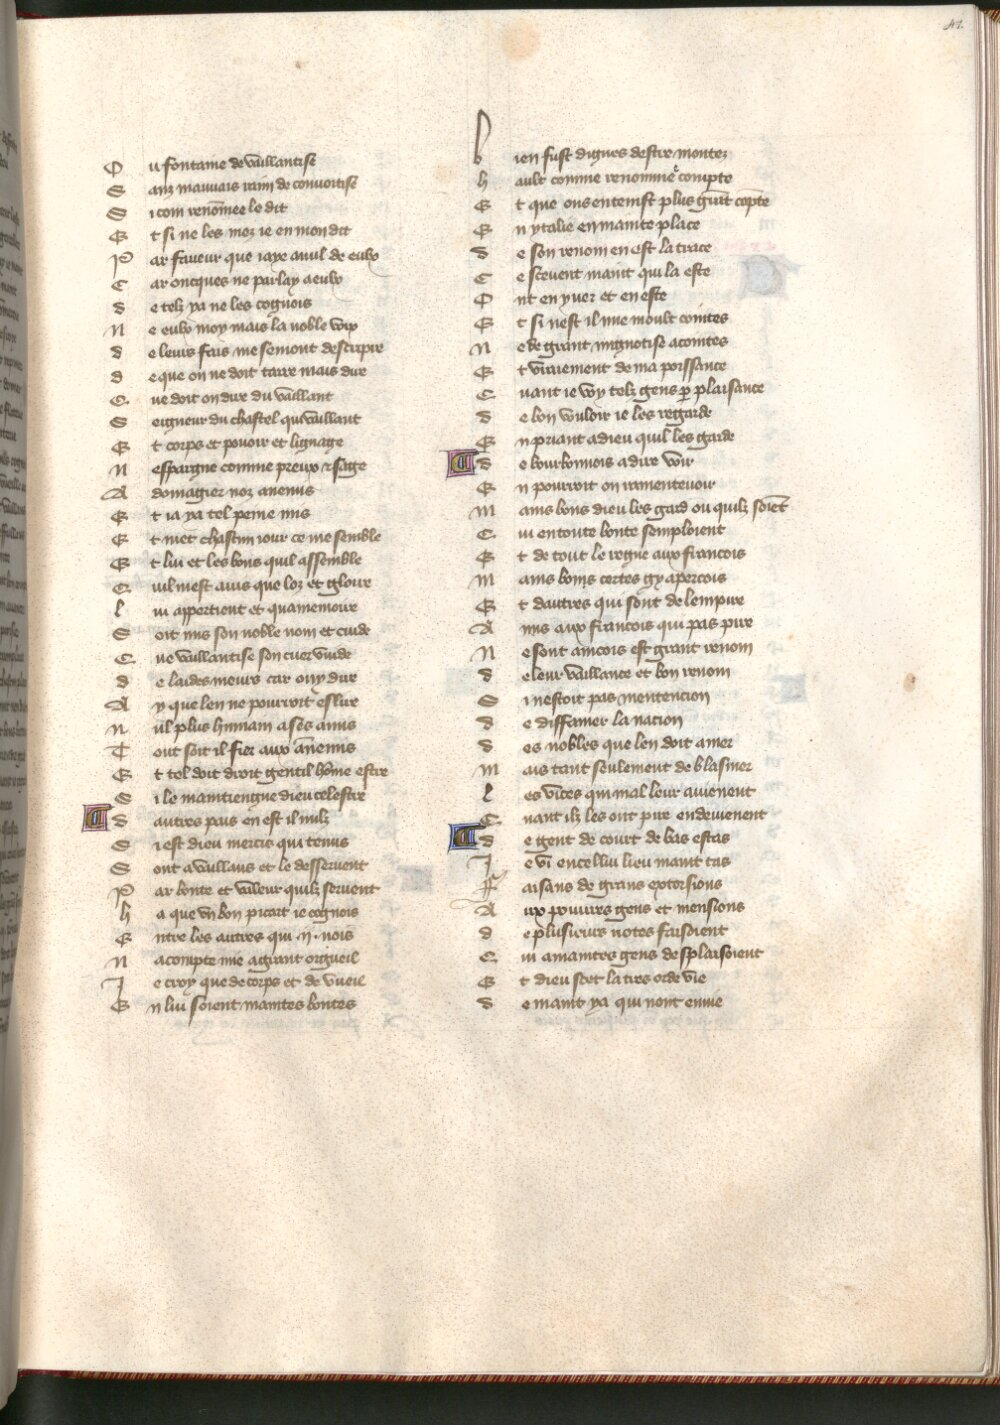 41.
O u fontaine de vaillantise
S anz mauuais raim de conuoitise
S i com renōmee le dit
E t si ne les moz ie en mon dit
P ar faueur que iaye a nul deulx
C ar oncques ne parlay a eulx
d e telz ya ne les cognois
N e eulx moy mais la noble voix
d e leurs fais me semont descripre
d e que on ne doit taire mais dire
Q ue doit on dire du vaillant
S eigneur du chastel qui vaillant
E t corps et pouoir et lignage
N espargne comme preux & sage
A domagier noz anemis
E t ia ya tel peine mis
E t met chascun iour ce me semble
E t lui et les bons quil assemble
Q uil mest auis que loz et gloire
l ui appertient et qua memoire
S oit mis son noble nom et cuide
Q ue vaillantise son cuer vuide
d e laides meurs car ouy dire
A y que len ne pourroit eslire
N ul plus humain a ses amis
T out soit il fier aux ānemis
E t tel doit droit gentil hōme estre
S i le maintiengne dieu celestre
d autres pais en est il nulz
S i est dieu mercis qui tenus
S ont a vaillans et le desseruent
P ar bonte et valeur quilz seruent
h a que vn bon picart ie cognois
E ntre les autres qui .ii. nois
N acompte mie a grant orgueil
J e croy que de corps et de vueil
E n lui soient maintes bontes
b ien fust dignes destre montez
h ault comme renomme compte
E t que ons entenist plus grāt cōpte
E n ytalie en mainte place
d e son renom en est la trace
C e sceuent maint qui la este
O nt en yuer et en este
E t si nest il mie moult cointes
N e de grant mignotise acointes
E t vraiement de ma poissance
Q uant ie voy telz gens ꝑ plaisance
d e bon vouloir ie les regarde
E n priant a dieu quil les garde
d e bourbonnois a dire voir
E n pourroit on ramenteuoir
M ains bons dieu les gard ou quilz soiēt
Q ui en toute bonte semploient
E t de tout le regne aux francois
M ains bons certes gy apercois
E t dautres qui sont de lempire
A mis aux francois qui pas pire
N e sont aincois est grant renom
d e leur vaillance et bon renom
S i nestoit pas mentencion
d e diffamer la nacion
d es nobles que len doit amer
M ais tant seulement de blasmer
l es vices qui mal leur auienent
Q uant ilz les ont pire en deuienent
d e gent de court de bas estas
J e vi en cellui lieu maint tas
F aisans de grans extorsions
A ux pouures gens et mensions
d e plusieurs notes faisoient
Q ui a maintes gens desplaisoient
E t dieu scet la tres orde vie
d e maint ya qui nont enuie